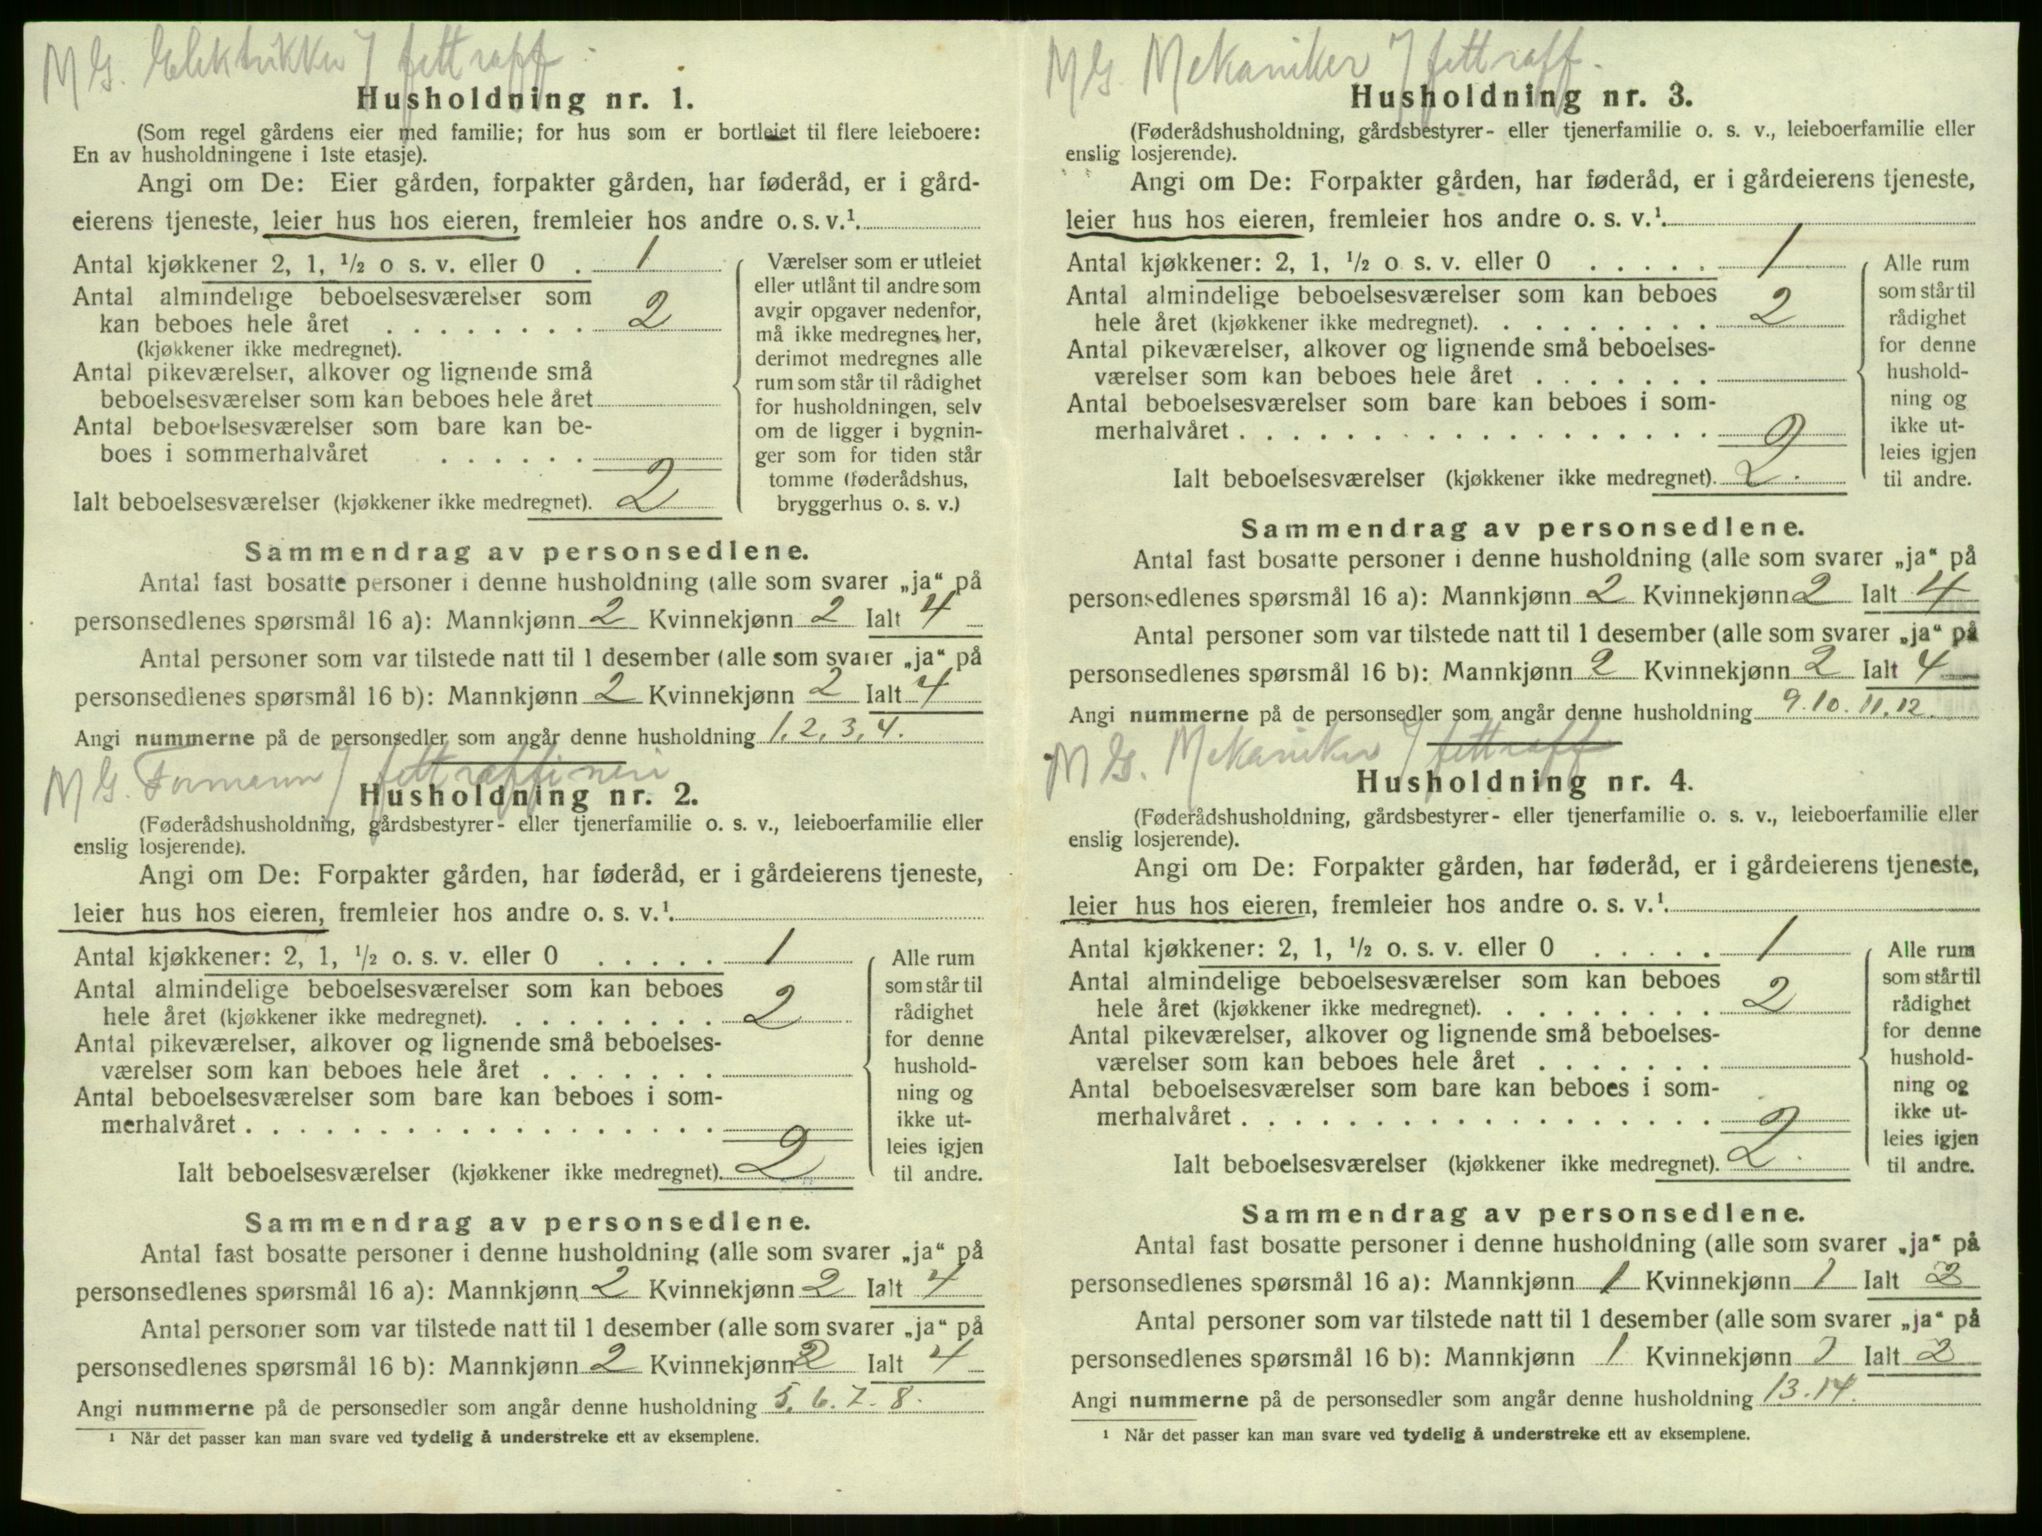 M G. Elektrikker / fettraff.
Husholdning nr. 1.
(Som regel gårdens eier med familie; for hus som er bortleiet til flere leieboere:
En av husholdningene i 1ste etasje).
Angi om De: Eier gården, forpakter gården, har føderåd, er i gård-
eierens tjeneste, leier hus hos eieren, fremleier hos andre o. s. v.¹
Antal kjøkkener 2, 1, ½ o s. v. eller 0 . 1
Antal almindelige beboelsesværelser som
kan beboes hele året . . . . . . . . 2
(kjøkkener ikke medregnet).
Antal pikeværelser, alkover og lignende små
beboelsesværelser som kan beboes hele året
Antal beboelsesværelser som bare kan be-
boes i sommerhalvåret . . . . . .
Ialt beboelsesværelser (kjøkkener ikke medregnet). 2
Værelser som er utleiet
eller utlånt til andre som
avgir opgaver nedenfor,
må ikke medregnes her,
derimot medregnes alle
rum som står til rådighet
for husholdningen, selv
om de ligger i bygnin-
ger som for tiden står
tomme (føderådshus,
bryggerhus o. s. v.)
Sammendrag av personsedlene.
Antal fast bosatte personer i denne husholdning (alle som svarer „ja“ på
personsedlenes spørsmål 16 a): Mannkjønn 2 Kvinnekjønn 2 Ialt 4
Antal personer som var tilstede natt til 1 desember (alle som svarer „ja“ på
personsedlenes spørsmål 16 b): Mannkjønn 2 Kvinnekjønn 2 Ialt 4
Angi nummerne på de personsedler som angår denne husholdning 1, 2, 3, 4.
M G. Formann / fettraffineri
Husholdning nr. 2.
(Føderådshusholdning, gårdsbestyrer- eller tjenerfamilie o. s. v., leieboerfamilie eller
enslig losjerende).
Angi om De: Forpakter gården, har føderåd, er i gårdeierens tjeneste,
leier hus hos eieren, fremleier hos andre o. s. v.¹
Antal kjøkkener: 2, 1, ½ o. s. v. eller 0 . . . . . 1
Antal almindelige beboelsesværelser som kan beboes
hele året (kjøkkener ikke medregnet). . . . . . . . . 2
Antal pikeværelser, alkover og lignende små beboelses-
værelser som kan beboes hele året . . . . . . .
Antal beboelsesværelser som bare kan beboes i som-
merhalvåret . . . . . . . . . . . . . . . . . .
Ialt beboelsesværelser (kjøkkener ikke medregnet). 2
Alle rum
som står til
rådighet
for denne
hushold-
ning og
ikke ut-
leies igjen
til andre.
Sammendrag av personsedlene.
Antal fast bosatte personer i denne husholdning (alle som svarer „ja“ på
personsedlenes spørsmål 16 a): Mannkjønn 2 Kvinnekjønn 2 Ialt 4
Antal personer som var tilstede natt til 1 desember (alle som svarer „ja“ på
personsedlenes spørsmål 16 b): Mannkjønn 2 Kvinnekjønn 2 Ialt 4
Angi nummerne på de personsedler som angår denne husholdning 5, 6. 7. 8.
¹ Når det passer kan man svare ved tydelig å understreke ett av eksemplene.
M G. Mekaniker / fettraff.
Husholdning nr. 3.
(Føderådshusholdning, gårdsbestyrer- eller tjenerfamilie o. s. v., leieboerfamilie eller
enslig losjerende).
Angi om De: Forpakter gården, har føderåd, er i gårdeierens tjeneste,
leier hus hos eieren, fremleier hos andre o. s. v.¹
Antal kjøkkener: 2, 1, ½ o. s. v. eller 0 . . . . . 1
Antal almindelige beboelsesværelser som kan beboes
hele året (kjøkkener ikke medregnet). . . . . . . . . 2
Antal pikeværelser, alkover og lignende små beboelses-
værelser som kan beboes hele året . . . . . . .
Antal beboelsesværelser som bare kan beboes i som-
merhalvåret . . . . . . . . . . . . . . . . . .
Ialt beboelsesværelser (kjøkkener ikke medregnet). 2.
Alle rum
som står til
rådighet
for denne
hushold-
ning og
ikke ut-
leies igjen
til andre.
Sammendrag av personsedlene.
Antal fast bosatte personer i denne husholdning (alle som svarer „ja“ på
personsedlenes spørsmål 16 a): Mannkjønn 2 Kvinnekjønn 2 Ialt 4
Antal personer som var tilstede natt til 1 desember (alle som svarer „ja“ på
personsedlenes spørsmål 16 b): Mannkjønn 2 Kvinnekjønn 2 Ialt 4
Angi nummerne på de personsedler som angår denne husholdning 9. 10. 11. 12.
M G. Mekaniker / fettraff
Husholdning nr. 4.
(Føderådshusholdning, gårdsbestyrer- eller tjenerfamilie o. s. v., leieboerfamilie eller
enslig losjerende).
Angi om De: Forpakter gården, har føderåd, er i gårdeierens tjeneste,
leier hus hos eieren, fremleier hos andre o. s. v.¹
Antal kjøkkener: 2, 1, ½ o. s. v. eller 0 . . . . . 1
Antal almindelige beboelsesværelser som kan beboes
hele året (kjøkkener ikke medregnet). . . . . . . . . 2
Antal pikeværelser, alkover og lignende små beboelses-
værelser som kan beboes hele året . . . . . . .
Antal beboelsesværelser som bare kan beboes i som-
merhalvåret . . . . . . . . . . . . . . . . . .
Ialt beboelsesværelser (kjøkkener ikke medregnet). 2.
Alle rum
som står til
rådighet
for denne
hushold-
ning og
ikke ut-
leies igjen
til andre.
Sammendrag av personsedlene.
Antal fast bosatte personer i denne husholdning (alle som svarer „ja“ på
personsedlenes spørsmål 16 a): Mannkjønn 1 Kvinnekjønn 1 Ialt 2
Antal personer som var tilstede natt til 1 desember (alle som svarer „ja“ på
personsedlenes spørsmål 16 b): Mannkjønn 1 Kvinnekjønn 1 Ialt 2
Angi nummerne på de personsedler som angår denne husholdning 13. 14.
¹ Når det passer kan man svare ved tydelig å understreke ett av eksemplene.